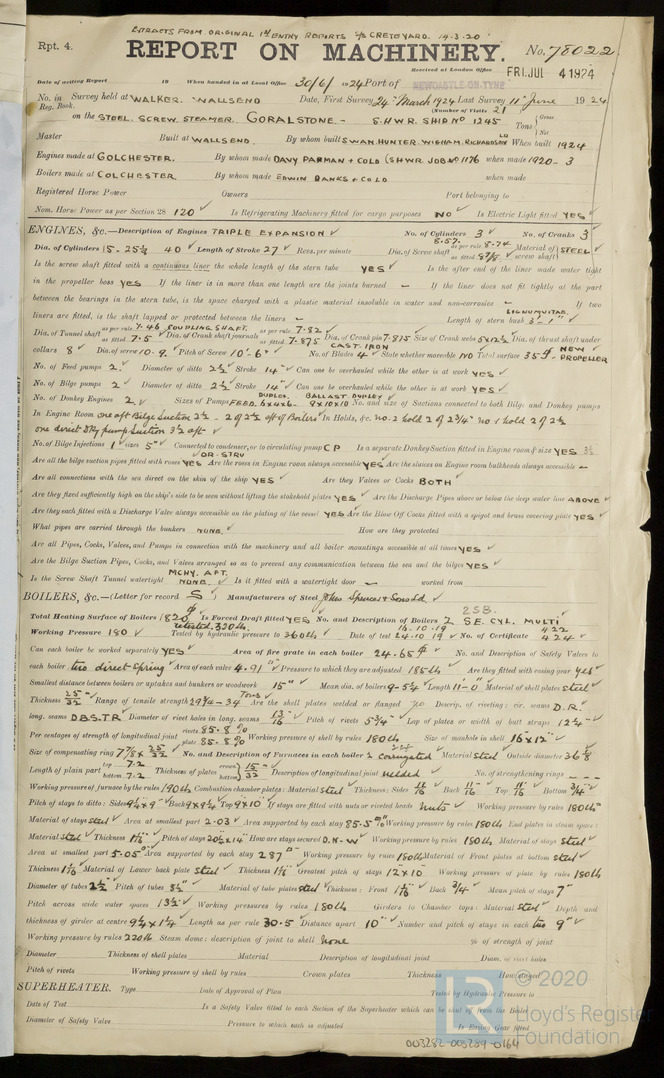 EXTRACTS FROM ORIGINAL 1st ENTRY REPORTS S/S CRETEYARD. 14-3-20
Rpt. 4. REPORT ON MACHINERY. No. 78022
Received at London Office FRI. JUL 4 1924
Date of writing Report 19 When handed in at Local Office 30/6/1924 Port of NEWCASTLE-ON-TYNE
No. in Survey held at WALKER. WALLSEND Date, First Survey 24th March 1924 Last Survey 11th June 1924
Reg. Book. (Number of Visits 21
on the STEEL. SCREW. STEAMER. GORALSTONE - S.H.W.R. SHIP NO 1245 Tons Gross Net
Master Built at WALLSEND. By whom built SWAN. HUNTER. WIGHAM. RICHARDSON LD When built 1924
Engines made at COLCHESTER. By whom made DAVY PAXMAN + CO LD (S.H.W.R. JOB NO 1176 when made 1920-3
Boilers made at COLCHESTER By whom made EDWIN DANKS + CO LD when made
Registered Horse Power Owners Port belonging to
Nom. Horse Power as per Section 28 120 Is Refrigerating Machinery fitted for cargo purposes NO Is Electric Light fitted YES
ENGINES, &c.—Description of Engines TRIPLE EXPANSION No. of Cylinders 3 No. of Cranks 3
Dia. of Cylinders 15 - 25½ 40 Length of Stroke 27 Revs. per minute Dia. of Screw shaft as per rule 8.57. 8.74 as fitted 8 7/8 Material of screw shaft STEEL
Is the screw shaft fitted with a continuous liner the whole length of the stern tube YES Is the after end of the liner made water tight
in the propeller boss YES If the liner is in more than one length are the joints burned — If the liner does not fit tightly at the part
between the bearings in the stern tube, is the space charged with a plastic material insoluble in water and non-corrosive — If two
liners are fitted, is the shaft lapped or protected between the liners — LIGNUMVITAE. Length of stern bush 3'-1"
Dia. of Tunnel shaft as per rule 7.46 as fitted 7.5 COUPLING SHAFT. Dia. of Crank shaft journals as per rule 7.82 as fitted 7.875 Dia. of Crank pin 7.875 Size of Crank webs 5x12½ Dia. of thrust shaft under
collars 8" Dia. of screw 10.9. Pitch of Screw 10'-6" No. of Blades 4 CAST. IRON State whether moveable NO Total surface 35 NEW PROPELLER
No. of Feed pumps 2. Diameter of ditto 2½ Stroke 14" Can one be overhauled while the other is at work YES
No. of Bilge pumps 2 Diameter of ditto 2½ Stroke 14" Can one be overhauled while the other is at work YES
No. of Donkey Engines 2. Sizes of Pumps DUPLEX. FEED. 6x4x6. BALLAST DUPLEX 8x10x10 No. and size of Suctions connected to both Bilge and Donkey pumps
In Engine Room one aft Bilge Suction 2½ - 2 of 2½ aft of Boilers In Holds, &c. No. 2 hold 2 of 2¾" No 1 hold 2 of 2½
one direct Dky pump Suction 3½ aft
No. of Bilge Injections 1 sizes 5" Connected to condenser, or to circulating pump C P Is a separate Donkey Suction fitted in Engine room & size YES 3½
Are all the bilge suction pipes fitted with roses YES OR. STRU Are the roses in Engine room always accessible YES Are the sluices on Engine room bulkheads always accessible —
Are all connections with the sea direct on the skin of the ship YES Are they Valves or Cocks BOTH
Are they fixed sufficiently high on the ship's side to be seen without lifting the stokehold plates YES Are the Discharge Pipes above or below the deep water line ABOVE
Are they each fitted with a Discharge Valve always accessible on the plating of the vessel YES Are the Blow Off Cocks fitted with a spigot and brass covering plate YES
What pipes are carried through the bunkers NONE. How are they protected
Are all Pipes, Cocks, Valves, and Pumps in connection with the machinery and all boiler mountings accessible at all times YES
Are the Bilge Suction Pipes, Cocks, and Valves arranged so as to prevent any communication between the sea and the bilges YES
Is the Screw Shaft Tunnel watertight MCHY. AFT. NONE. Is it fitted with a watertight door — worked from
BOILERS, &c.—(Letter for record S Manufacturers of Steel John Spencer & Sons Ld
Total Heating Surface of Boilers 1820 Is Forced Draft fitted YES No. and Description of Boilers 2 S.B. 2 SE. CYL. MULTI
Working Pressure 180 retested. 320 lb. Tested by hydraulic pressure to 360 lb Date of test 16.10.19 24.10.19 No. of Certificate 422 424
Can each boiler be worked separately YES Area of fire grate in each boiler 24.65 No. and Description of Safety Valves to
each boiler two direct Spring Area of each valve 4.91" Pressure to which they are adjusted 185 lb Are they fitted with easing gear yes
Smallest distance between boilers or uptakes and bunkers or woodwork 15" Mean dia. of boilers 9-5¼ Length 11'-0" Material of shell plates steel
Thickness 25/32 Range of tensile strength 29¾ - 34 Tons Are the shell plates welded or flanged no Descrip. of riveting: cir. seams D.R
long. seams D.B.S.T.R Diameter of rivet holes in long. seams 13/16 Pitch of rivets 5¾" Lap of plates or width of butt straps 12¼"
Per centages of strength of longitudinal joint rivets 85.8% plate 85.8% Working pressure of shell by rules 180 lb Size of manhole in shell 16"x12"
Size of compensating ring 7 7/8 x 25/32 No. and Description of Furnaces in each boiler 2 corrugated Material Steel Outside diameter 36
Length of plain part top 7.2 bottom 7.2 Thickness of plates crown 15/32 bottom Description of longitudinal joint welded No. of strengthening rings - - -
Working pressure of furnace by the rules 190 lb Combustion chamber plates: Material Steel Thickness: Sides 11/16 Back 11/16 Top 11/16 Bottom ¾
Pitch of stays to ditto: Sides 9¼x9" Back 9x9¼ Top 9x10" If stays are fitted with nuts or riveted heads nuts Working pressure by rules 180 lb
Material of stays Steel Area at smallest part 2.03 Area supported by each stay 85.5 Working pressure by rules 180 lb End plates in steam space:
Material steel Thickness 1 1/16 Pitch of stays 20½x14" How are stays secured D.N.W Working pressure by rules 180 lb Material of stays Steel
Area at smallest part 5.05 Area supported by each stay 287 Working pressure by rules 180 lb Material of Front plates at bottom steel
Thickness 1 1/16 Material of Lower back plate Steel Thickness 1 1/16 Greatest pitch of stays 12"x10" Working pressure of plate by rules 180 lb
Diameter of tubes 2½ Pitch of tubes 3½" Material of tube plates steel Thickness: Front 1 1/16 Back ¾" Mean pitch of stays 7"
Pitch across wide water spaces 13½ Working pressures by rules 180 lb Girders to Chamber tops: Material Steel Depth and
thickness of girder at centre 9¼x1¼ Length as per rule 30.5 Distance apart 10" Number and pitch of stays in each two 9"
Working pressure by rules 220 lb Steam dome: description of joint to shell none % of strength of joint
Diameter Thickness of shell plates Material Description of longitudinal joint Diam. of rivet holes
Pitch of rivets Working pressure of shell by rules Crown plates Thickness How stayed
SUPERHEATER. Type Date of Approval of Plan Tested by Hydraulic Pressure to
Date of Test Is a Safety Valve fitted to each Section of the Superheater which can be shut off from the Boiler
Diameter of Safety Valve Pressure to which each is adjusted Is Easing Gear fitted
© 2020
LR Lloyd's Register
Foundation
003282-003289-0164